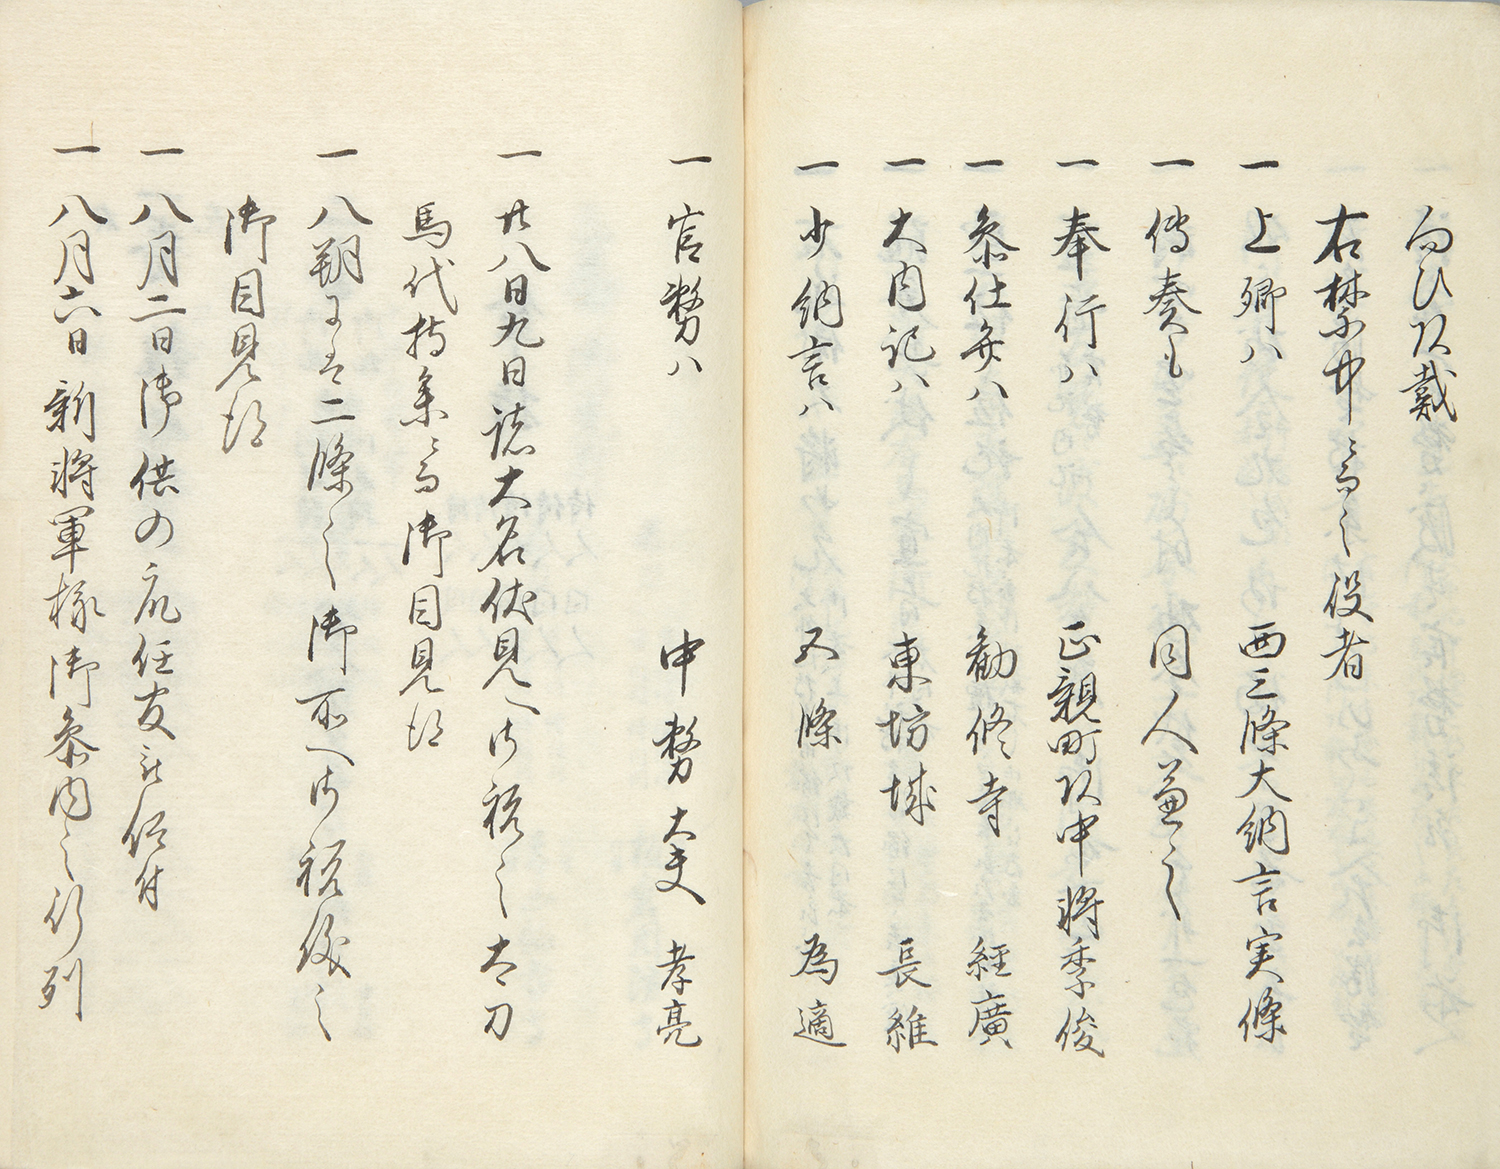 向ひ頂戴
右禁中ニ而之役者
一 上卿ハ 西三條大納言実條
一 傳奏も 同人兼之
一 奉行ハ 正親町頭中将季俊
一 参仕弁ハ 勧修寺 経廣
一 大内記ハ 東坊城 長維
一 少納言ハ 五條 為適
一 官務ハ 中務大夫 孝亮
一 廿八日九日諸大名伏見へ御祝之太刀
馬代持参ニ而御目見得
一 八朔ニハ二條之御所へ御祝儀之
御目見得
一 八月二日御供の 任官被仰付
一 八月六日新将軍様御参内之行列